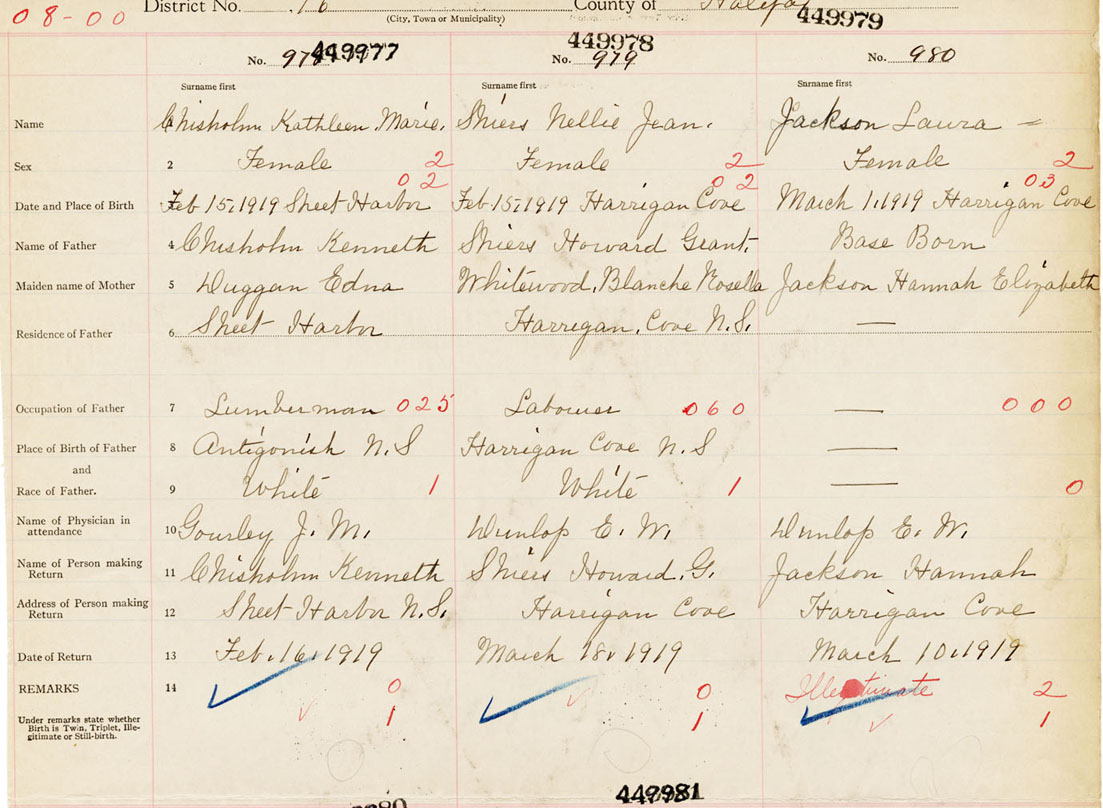 08-00 District No. 16 County of Halifax
(City, Town or Municipality)
449977 449978 449979
No. No. 979 No. 980
Surname first Surname first Surname first
Name 1 Chisholm Kathleen Marie. Skiers Nellie Jean. Jackson Laura
Sex 2 Female 2 Female 2 Female 2
02 02 03
Date and Place of Birth Feb 15, 1919 Sheet Harbor Feb 15, 1919 Harrigan Cove March 1, 1919 Harrigan Cove
Name of Father 4 Chisholm Kenneth Skiers Howard Grant. Base Born
Maiden name of Mother 5 Duggan Edna Whitewood, Blanche Rosella Jackson Hannah Elizabeth
Residence of Father 6 Sheet Harbor Harrigan Cove N.S. —
Occupation of Father 7 Lumberman 025 Labourer 060 — 000
Place of Birth of Father 8 Antigonish N.S Harrigan Cove N.S —
and
Race of Father. 9 White 1 White 1 — 0
Name of Physician in attendance 10 Gourley J. M. Dunlop E. W. Dunlop E. W.
Name of Person making Return 11 Chisholm Kenneth Skiers Howard. G. Jackson Hannah
Address of Person making Return 12 Sheet Harbor N.S. Harrigan Cove Harrigan Cove
Date of Return 13 Feb. 16, 1919 March 18, 1919 March 10, 1919
REMARKS 14 0 0 Illegitimate 2
Under remarks state whether 1 1 1
Birth is Twin, Triplet, Ille-
gitimate or Still-birth.
449981